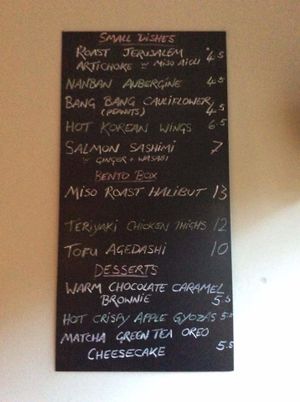 SMALL DISHES
ROAST JERUSALEM
ARTICHOKE w MISO AIOLI 4.5
NANBAN AUBERGINE 4.5
BANG BANG CAULIFLOWER
(PEANUTS) 4.5
HOT KOREAN WINGS 6.5
SALMON SASHIMI 7
w GINGER + WASABI
BENTO BOX
MISO ROAST HALIBUT 13
TERIYAKI CHICKEN THIGHS 12
TOFU AGEDASHI 10
DESSERTS
WARM CHOCOLATE CARAMEL
BROWNIE 5.5
HOT CRISPY APPLE GYOZAS 5.5
MATCHA GREEN TEA OREO
CHEESECAKE 5.5